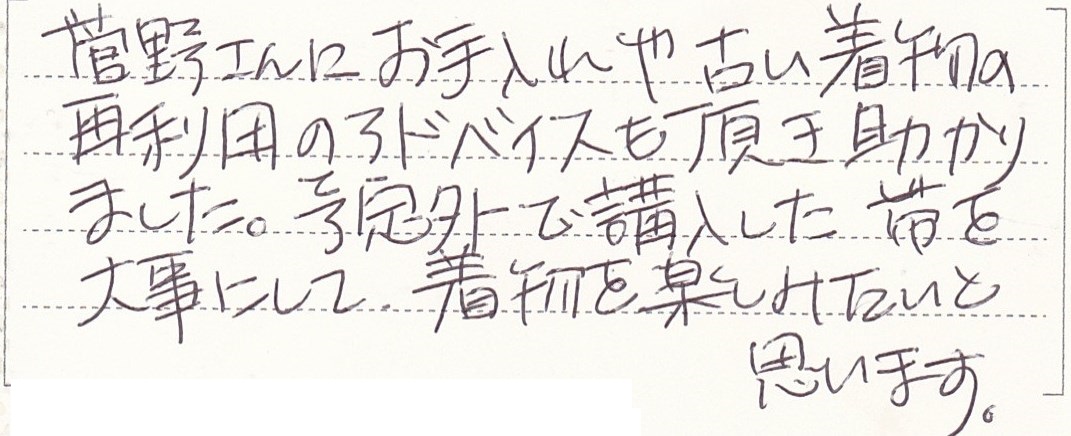 菅野さんにお手入れや古い着物の
再利用のアドバイスも頂き助かり
ました。予定外で講入した帯を
大事にして、着物を楽しみたいと
思います。